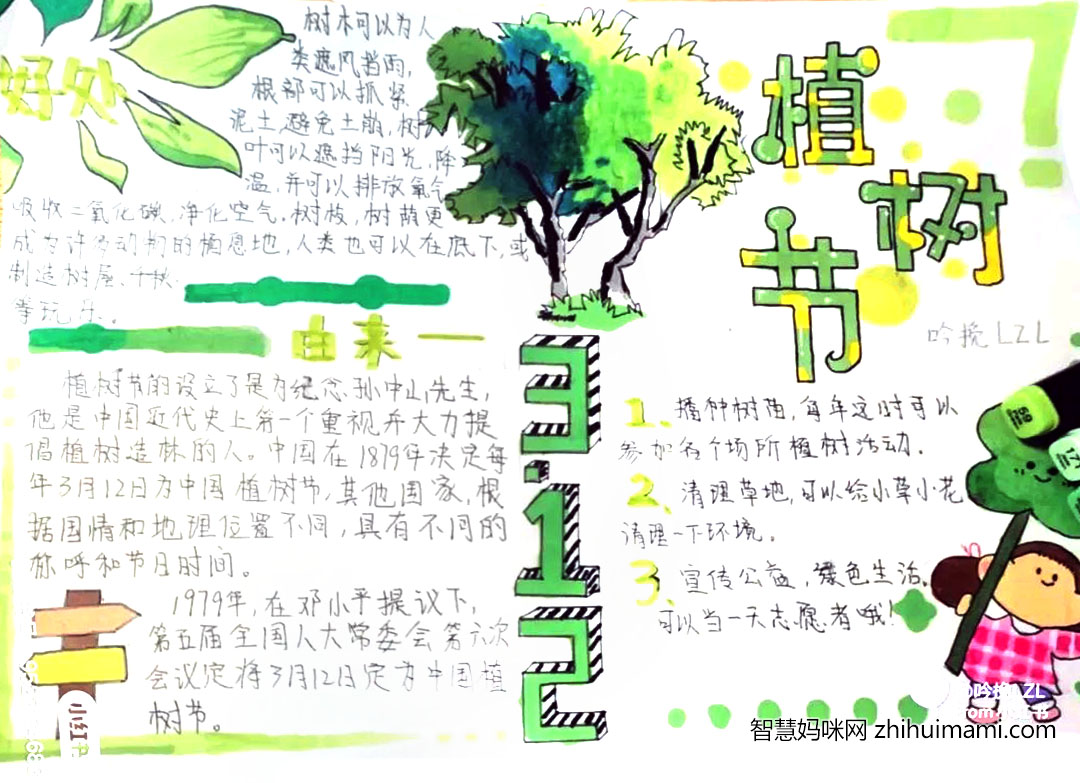 好处
树木可以为人
类遮风挡雨,
根部可以抓紧
泥土,避免土崩,树
叶可以遮挡阳光,降
温,并可以排放氧气
吸收二氧化碳,净化空气.树枝,树荫更
成为许多动物的栖息地,人类也可以在底下,或
制造树屋、千秋
等玩乐。
由来一
植树节的设立了是为纪念孙中山先生,
他是中国近代史上第一个重视并大力提
倡植树造林的人。中国在1879年决定每
年3月12日为中国植树节,其他国家,根
据国情和地理位置不同,具有不同的
称呼和节日时间。
1979年,在邓小平提议下,
第五届全国人大常委会第六次
会议定将3月12日定为中国植
树节。
3.12
植
树
节
吟挽LZL
1、播种树苗,每年这时可以
参加各个场所植树活动.
2、清理草地,可以给小草小花
清理一下环境。
3、宣传公益,绿色生活,
可以当一天志愿者哦!
小红书
吟挽LZL
智慧妈咪网 zhihuimami.com